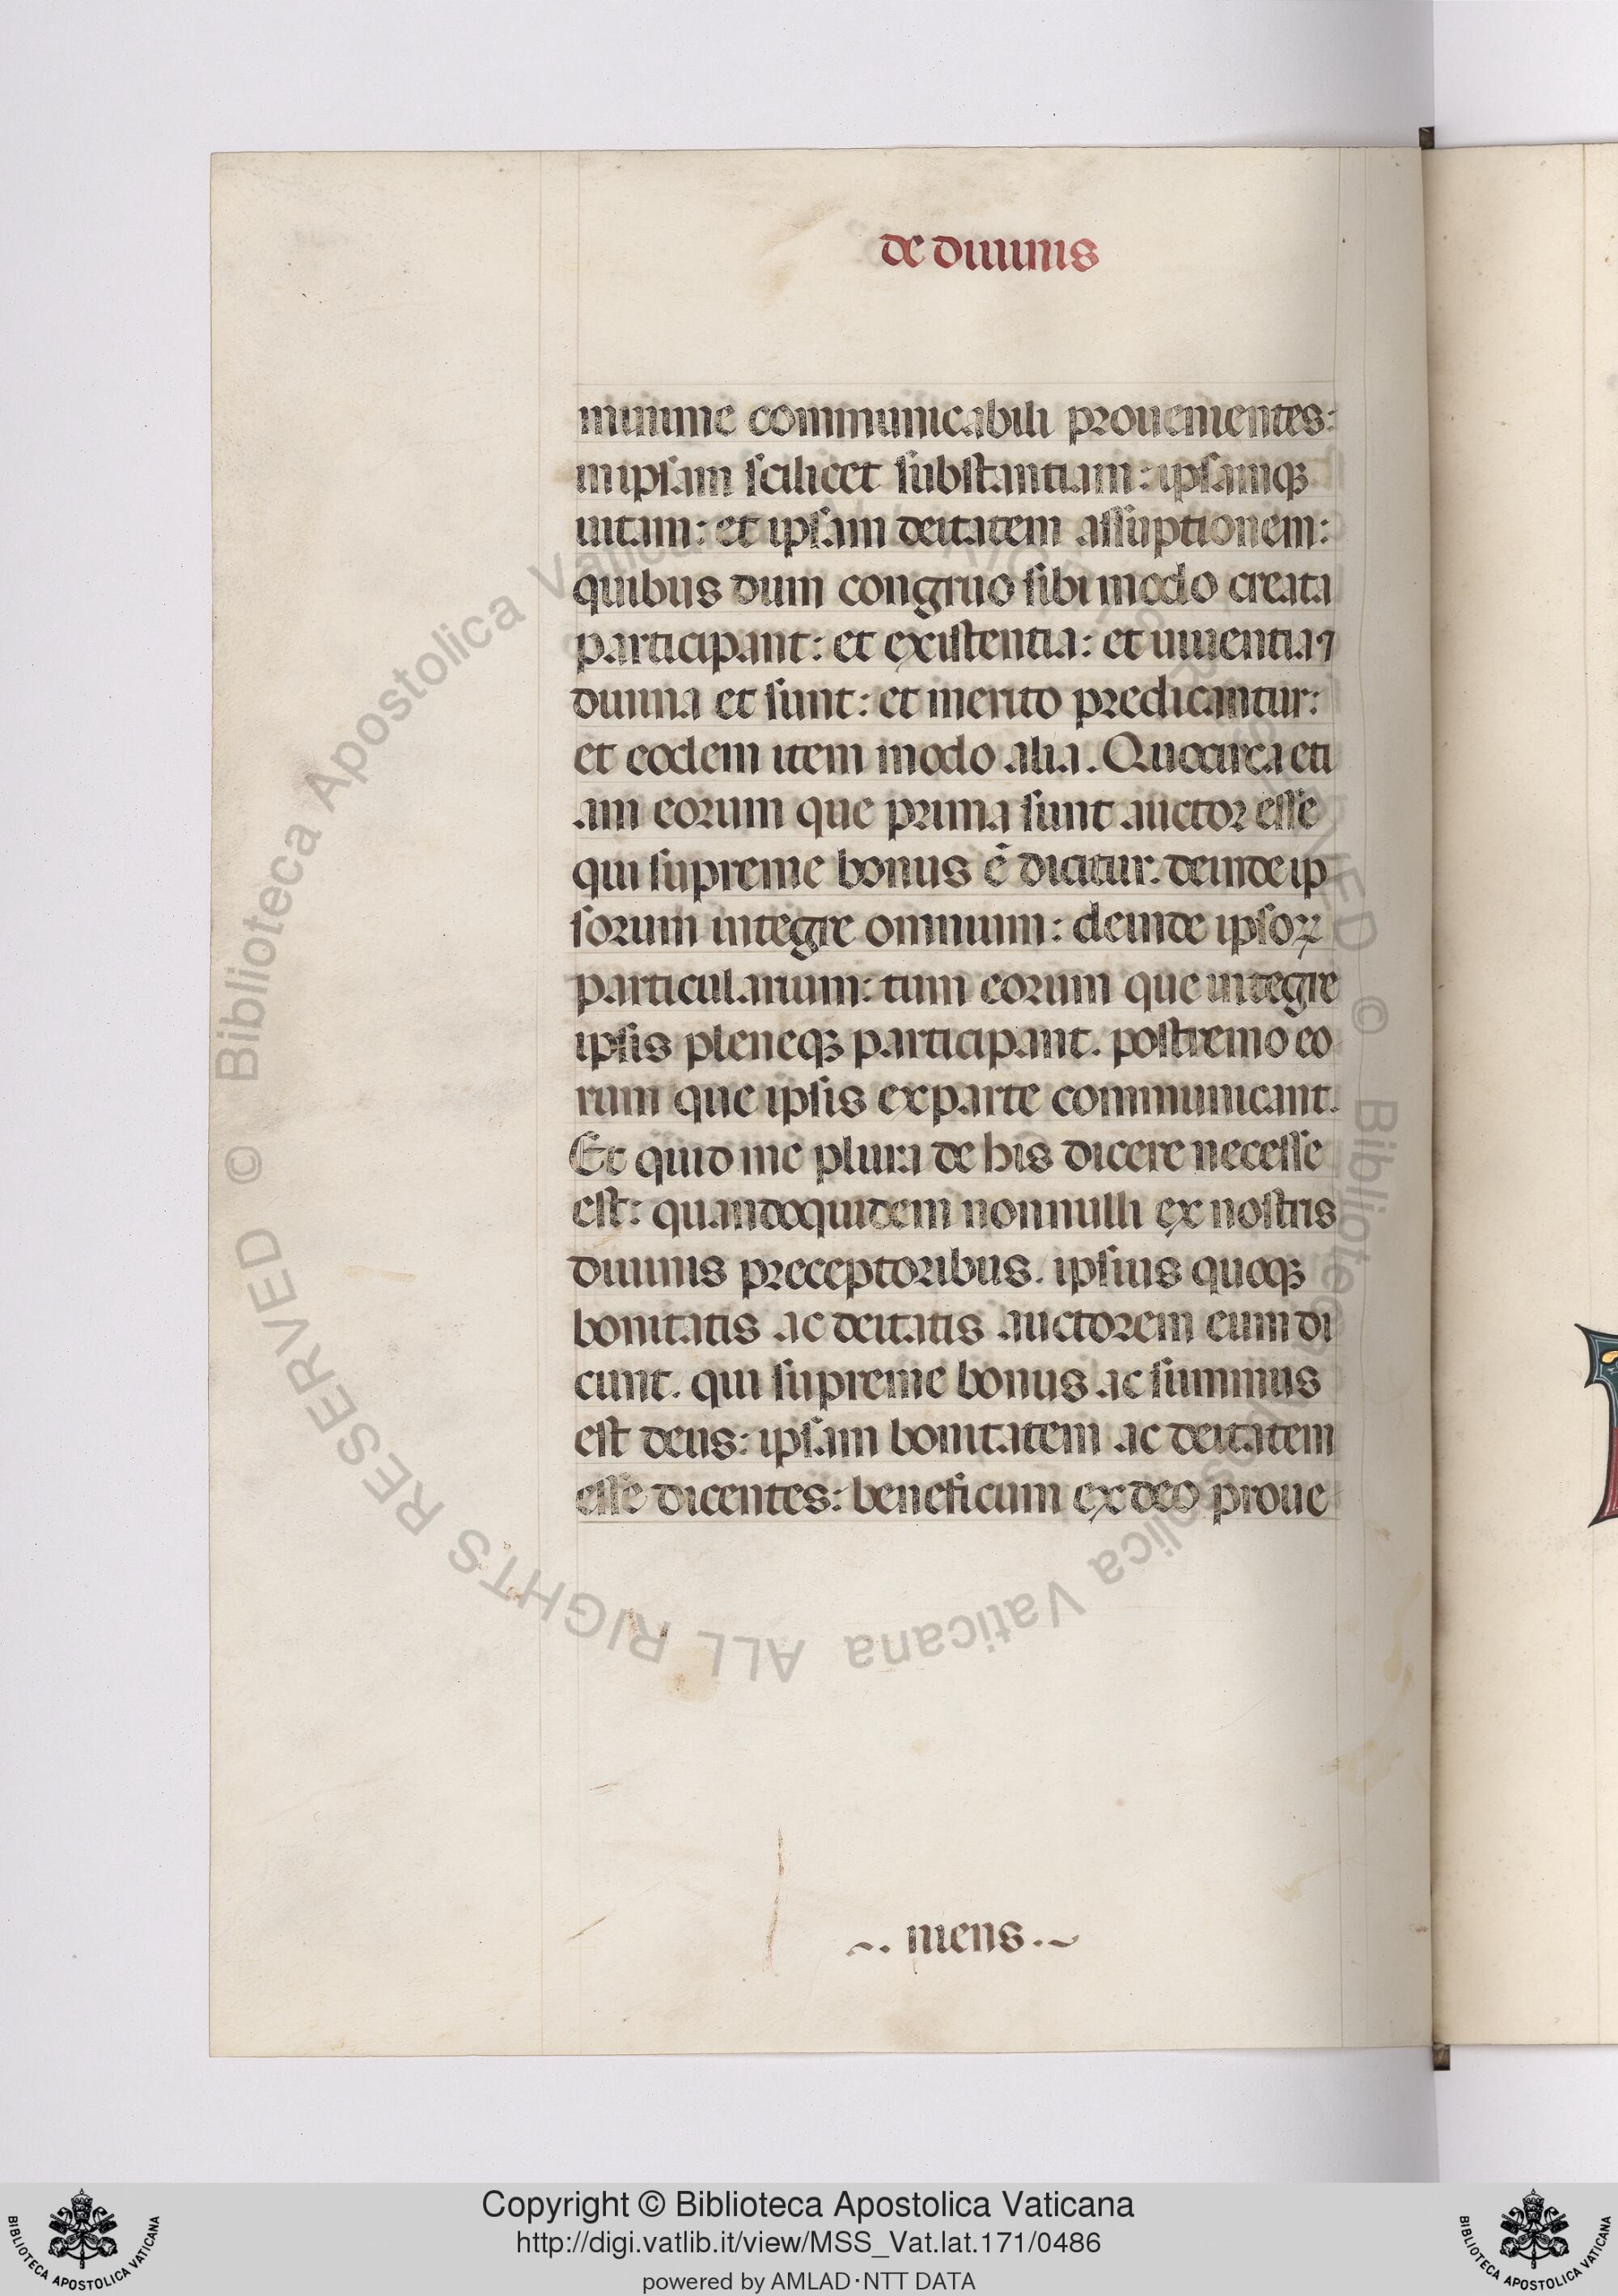 de diuinis
minime communicabili prouenientes:
in ipsam scilicet substantiam: ipsamqꝫ
uitam: et ipsam deitatem assuptionem:
quibus dum congruo sibi modo creata
participant: et existentia: et uiuentia ⁊
diuina et sunt: et merito predicantur:
et eodem item modo alia. Quocirca eti
am eorum que prima sunt auctor esse
qui supreme bonus ē dicitur. deinde ip
sorum integre omnium: deinde ipsoꝝ
particularium: tum eorum que integre
ipsis pleneqꝫ participant. postremo eo
rum que ipsis ex parte communicant.
Et quid me plura de his dicere necesse
est: quandoquidem nonnulli ex nostris
diuinis preceptoribus. ipsius quoqꝫ
bonitatis ac deitatis auctorem eum di
cunt. qui supreme bonus ac summus
est deus: ipsam bonitatem ac deitatem
esse dicentes: beneficam ex deo proue
~. niens .~
© Biblioteca Apostolica Vaticana ALL RIGHTS RESERVED © Biblioteca Apostolica Vaticana ALL RIGHTS RESERVED
Copyright © Biblioteca Apostolica Vaticana
http://digi.vatlib.it/view/MSS_Vat.lat.171/0486
powered by AMLAD·NTT DATA
BIBLIOTECA APOSTOLICA VATICANA
BIBLIOTECA APOSTOLICA VATICANA